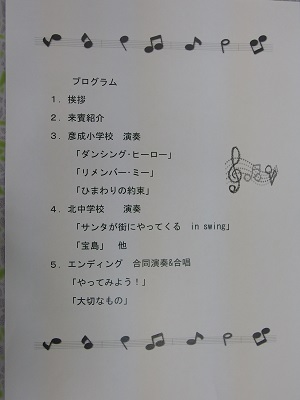 プログラム
１．挨拶
２．来賓紹介
３．彦成小学校　演奏
「ダンシング・ヒーロー」
「リメンバー・ミー」
「ひまわりの約束」
４．北中学校　　演奏
「サンタが街にやってくる　in swing」
「宝島」　他
５．エンディング　合同演奏&合唱
「やってみよう！」
「大切なもの」